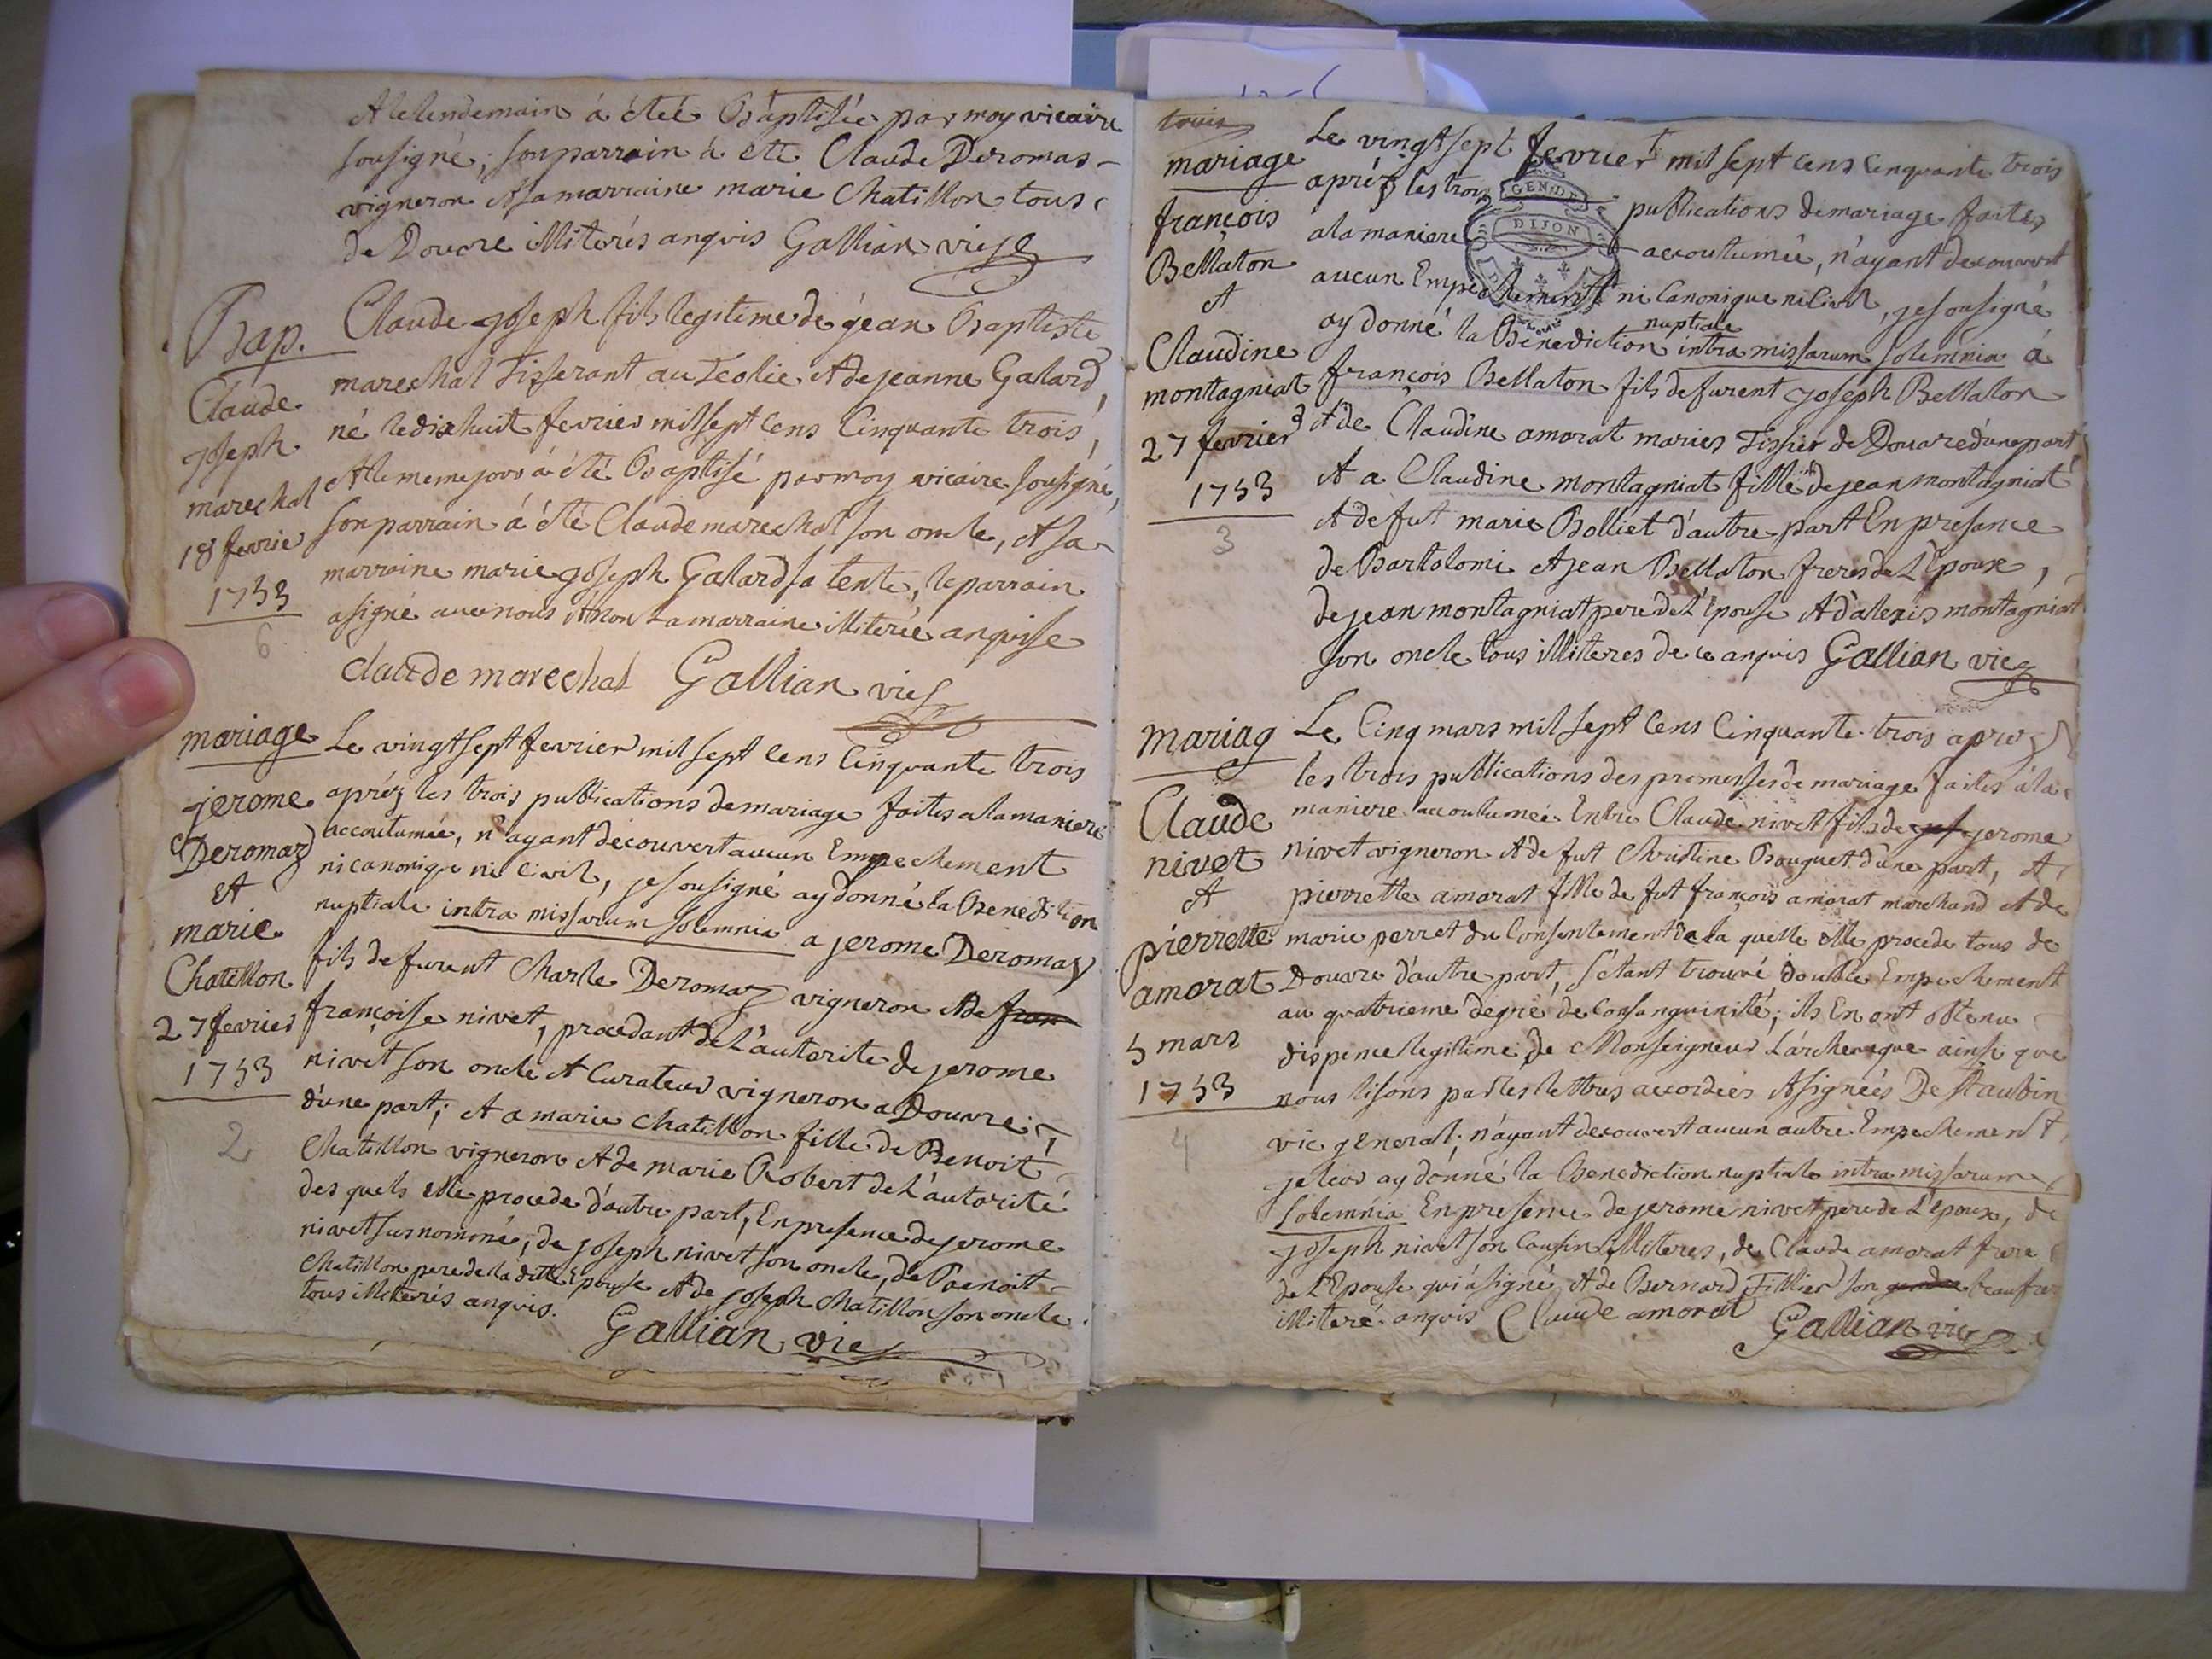 et le lendemain à étéé Baptisée par moy vicaire
sousigné; son parrain à eté Claude Deromas
vigneron et sa marraine marie Chatillon tous
de Douvre illiterés anquis Gallian vic
Bap.
Claude
joseph
marechal
18 fevrier
1753
6
Claude joseph fils legitime de jéan Baptiste
marechal Tisserant au et de jeanne Galard,
né le dix huit fevrier mil sept cens Cinquante trois,
et le meme jour à été Baptisé par moy vicaire sousigné,
son parrain à été Claude marechal son oncle, et sa
marraine marie joseph Galard sa tente, le parrain
a signé avec nous et non la marraine illiterée anquise
claude marechal Gallian vic
mariage
jerome
Deromaz
et
marie
Chatillon
27 fevrier
1753
2
Le vingt sept fevrier mil sept cens Cinquante trois
apréz les trois publications de mariage faites a la maniere
accoutumée, n'ayant découvert aucun Empechement
ni canonique ni Civil, je sousigné ay donné la Benediction
nuptiale intra missarum solemnia a jerome Deromaz
fils de furent Charle Deromaz vigneron et de fran
françoise nivet, procedant de L'autorite de jerome
nivet son oncle et Curateur vigneron a Douvre
d'une part; et a marie chatillon fille de Benoit
Chatillon vigneron et de marie Robert de L'autorité
des quels elle procede d'autre part, En presence de jerome
nivet susnommé, de joseph nivet son oncle, de Benoit
Chatillon pere de la ditte Epouse et de joseph Chatillon son oncle
tous illiterés anquis. Gallian vic
trois
mariage
françois
Bellaton
et
Claudine
montagniat
27 fevrier
1753
3
Le vingt sept fevrier mil sept cens Cinquante trois
apréz les trois publications de mariage faites
GEN. DE
DIJON
a la maniere accoutumée, n'ayant decouvert
aucun Empéchement ni Canonique ni Civil, je sousigné
ay donné la Benediction nuptiale intra missarum solemnia à
françois Bellaton fils de furent joseph Bellaton
et de Claudine amorat mariés Tissier de Douvre d'une part
et a Claudine montagniat fille de jean montagniat
et de fut marie Bolliet d'autre part En presance
de Bartolomi et jean Bellaton freres de L'Epoux,
de jean montagniat pere de L'Epouse et d'alexis montagniat
son oncle tous illiteres de ce anquis Gallian vic
mariag
Claude
nivet
et
pierrette
amorat
5 mars
1753
4
Le Cinq mars mil sept cens Cinquante trois aprez
les trois publications des promesses de mariage faites à la
maniere accoutumée Entre Claude nivet fils de jerome
nivet vigneron et de fut Christine Bouquet d'une part, et
pierrette amorat fille de fut françois amorat marchand et de
marie perret du Consentement de la quelle elle procede tous de
Douvre d'autre part, s'étant trouvé double Empechement
au quatrieme degré de Consanguinité, ils En ont obtenu
dispense legitime de Monseigneur L'archeveque ainsi que
nous lisons par les lettres accordées et signées De St aubin
vic general; n'ayant decouvert aucun autre Empechement,
je leur ay donné la Benediction nuptiale intra missarum
solemnia En presence de jerome nivet pere de L'epoux, de
joseph nivet son Cousin illiteres, de Claude amorat frere
de L'Epouse qui à signé et de Bernard Tillier son gendre beaufrer
illiteré anquis Claude amorat Gallian vic